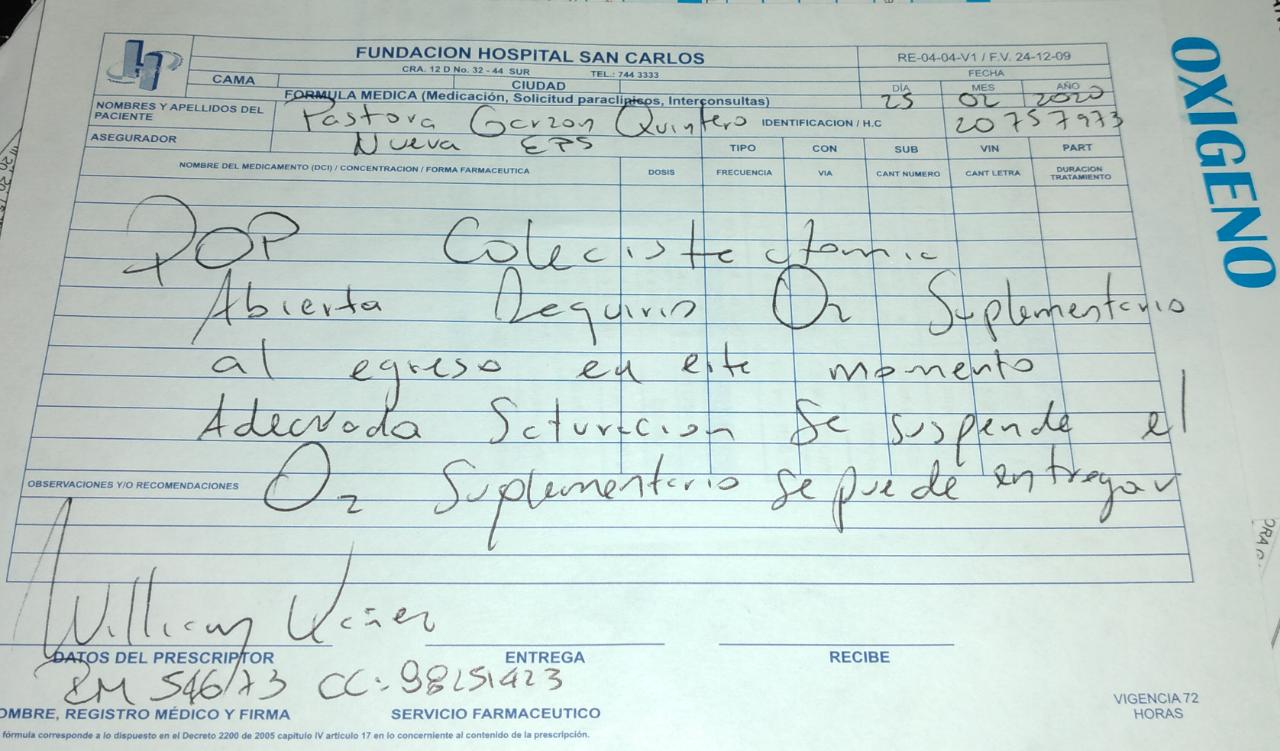 FUNDACION HOSPITAL SAN CARLOS
CRA. 12 D No. 32 - 44 SUR TEL.: 744 3333
RE-04-04-V1 / F.V. 24-12-09
CAMA CIUDAD FECHA
FORMULA MEDICA (Medicación, Solicitud paraclinicos, Interconsultas)
DÍA MES AÑO
25 02 2020
NOMBRES Y APELLIDOS DEL PACIENTE Pastora Garzon Quintero IDENTIFICACION / H.C 20757973
ASEGURADOR Nueva EPS TIPO CON SUB VIN PART
NOMBRE DEL MEDICAMENTO (DCI) / CONCENTRACION / FORMA FARMACEUTICA DOSIS FRECUENCIA VIA CANT NUMERO CANT LETRA DURACION TRATAMIENTO
POP Colecistectomia
Abierta Requirio O2 Suplementario
al egreso en este momento
Adecuada Saturacion Se suspende el
OBSERVACIONES Y/O RECOMENDACIONES O2 Suplementario se puede entregar
William
DATOS DEL PRESCRIPTOR ENTREGA RECIBE
RM 546/73 CC: 98251423
OMBRE, REGISTRO MÉDICO Y FIRMA SERVICIO FARMACEUTICO
VIGENCIA 72
HORAS
fórmula corresponde a lo dispuesto en el Decreto 2200 de 2005 capitulo IV articulo 17 en lo concerniente al contenido de la prescripción.
OXIGENO